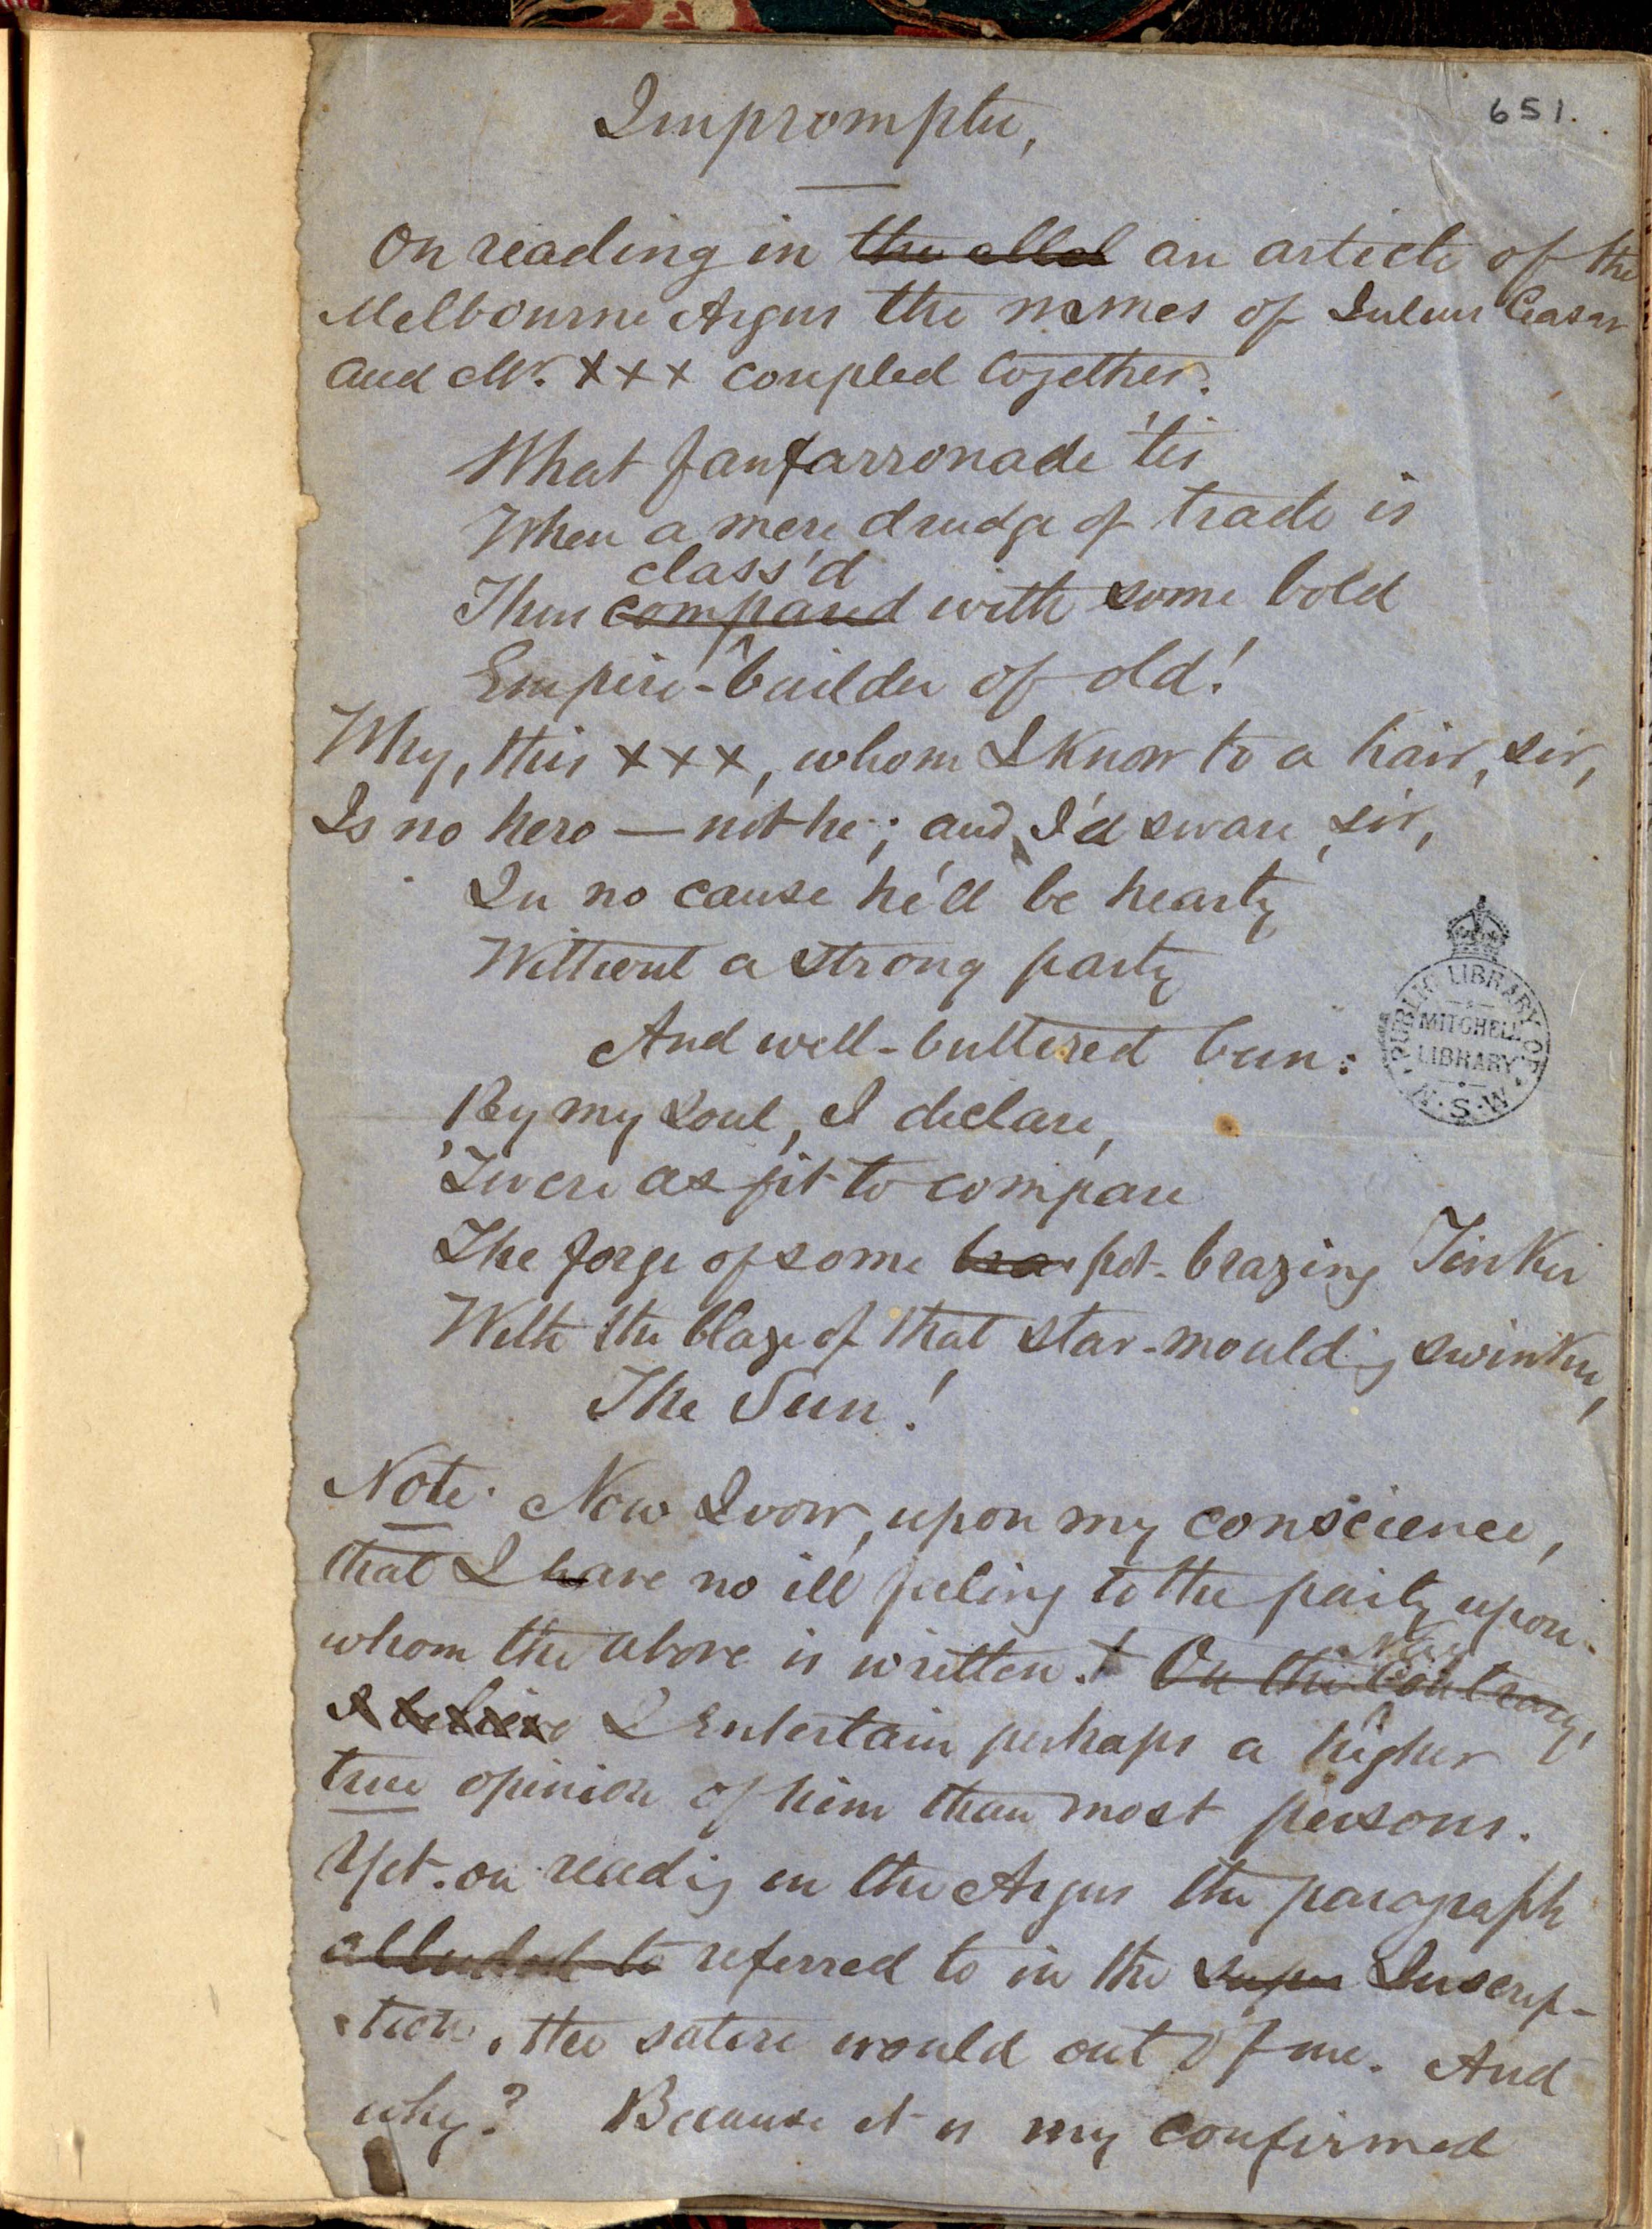 651.
Impromptu,
On reading in the an article of the
Melbourne Argus the names of Julius Ceasar
and Mr. xxx coupled together.
What fanfarronade 'tis
When a mere drudge of trade is
class'd
Thus compared with some bold
Empire-builder of old!
Why, this xxx, whom I know to a hair, sir,
Is no hero — not he; and I'd sware, sir,
In no cause he'll be hearty
Without a strong party
And well-buttered bun:
By my soul, I declare,
'Twere as fit to compare
The forge of some bra pot-brazing Tinker
With the blaze of that star-moulding swinker,
The Sun!
PUBLIC LIBRARY OF N.S.W.
MITCHELL
LIBRARY
Note. Now I vow, upon my conscience,
that I have no ill feeling to the party upon
whom the above is written. On the contrary,
Nay
I believe I entertain perhaps a higher
true opinion of him than most persons.
Yet on reading in the Argus the paragraph
alluded to referred to in the super Inscrip-
tion, the satire would out of me. And
why? Because it is my confirmed